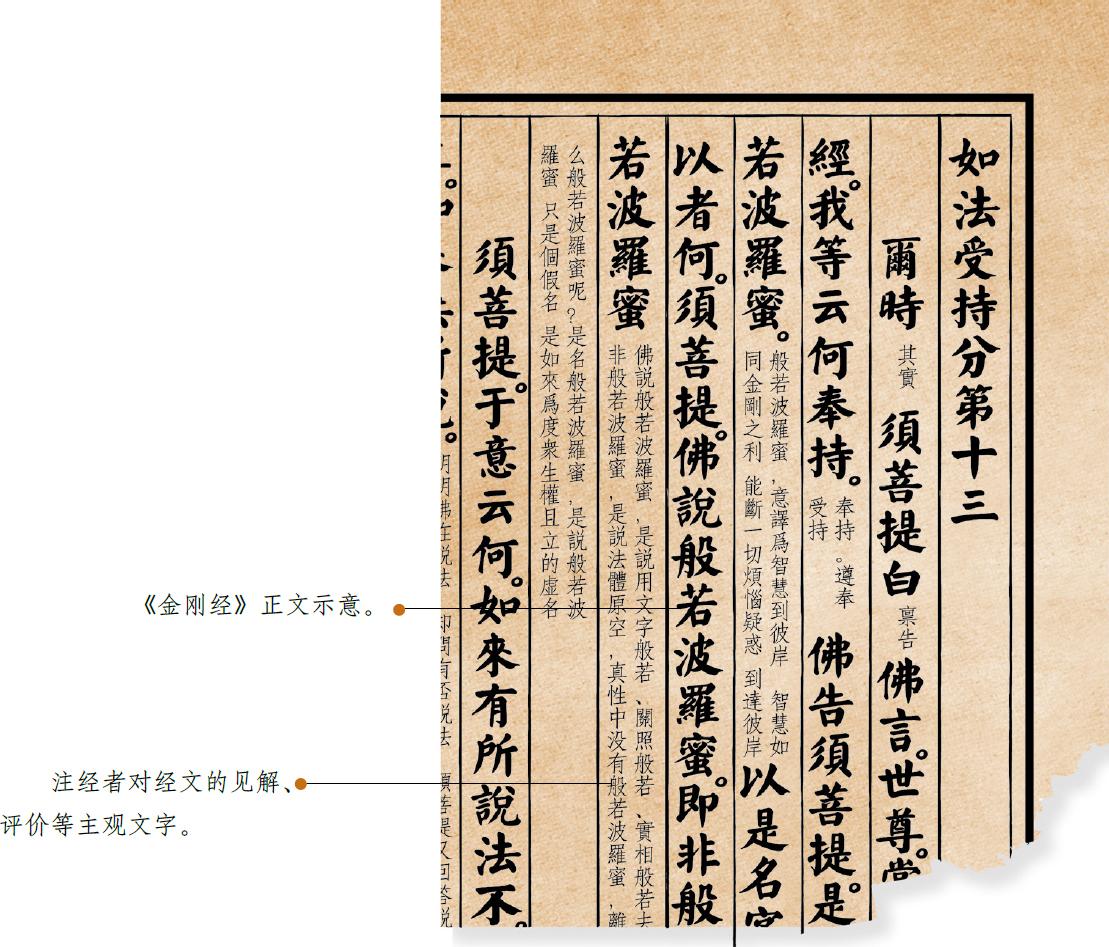 如法受持分第十三
爾時 其實 須菩提白 禀告 佛言。世尊。
經。我等云何奉持。 奉持。遵奉
受持
佛告須菩提。是
若波羅蜜。 般若波羅蜜,意譯爲智慧到彼岸 智慧如
同金剛之利 能斷一切煩惱疑惑 到達彼岸
以是名
以者何。須菩提。佛說般若波羅蜜。即非般
若波羅蜜 佛説般若波羅蜜,是説用文字般若、關照般若、實相般若去
非般若波羅蜜,是説法體原空,真性中没有般若波羅蜜,離
么般若波羅蜜呢?是名般若波羅蜜,是説般若波
羅蜜 只是個假名 是如來爲度衆生權且立的虛名
須菩提。于意云何。如來有所說法不。
《金刚经》正文示意。
注经者对经文的见解、
评价等主观文字。